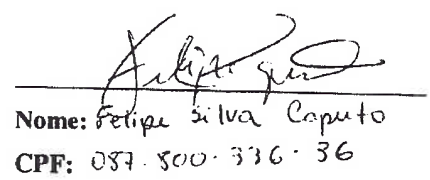 Nome: Felipe Silva Caputo
CPF: 087.800.336.36